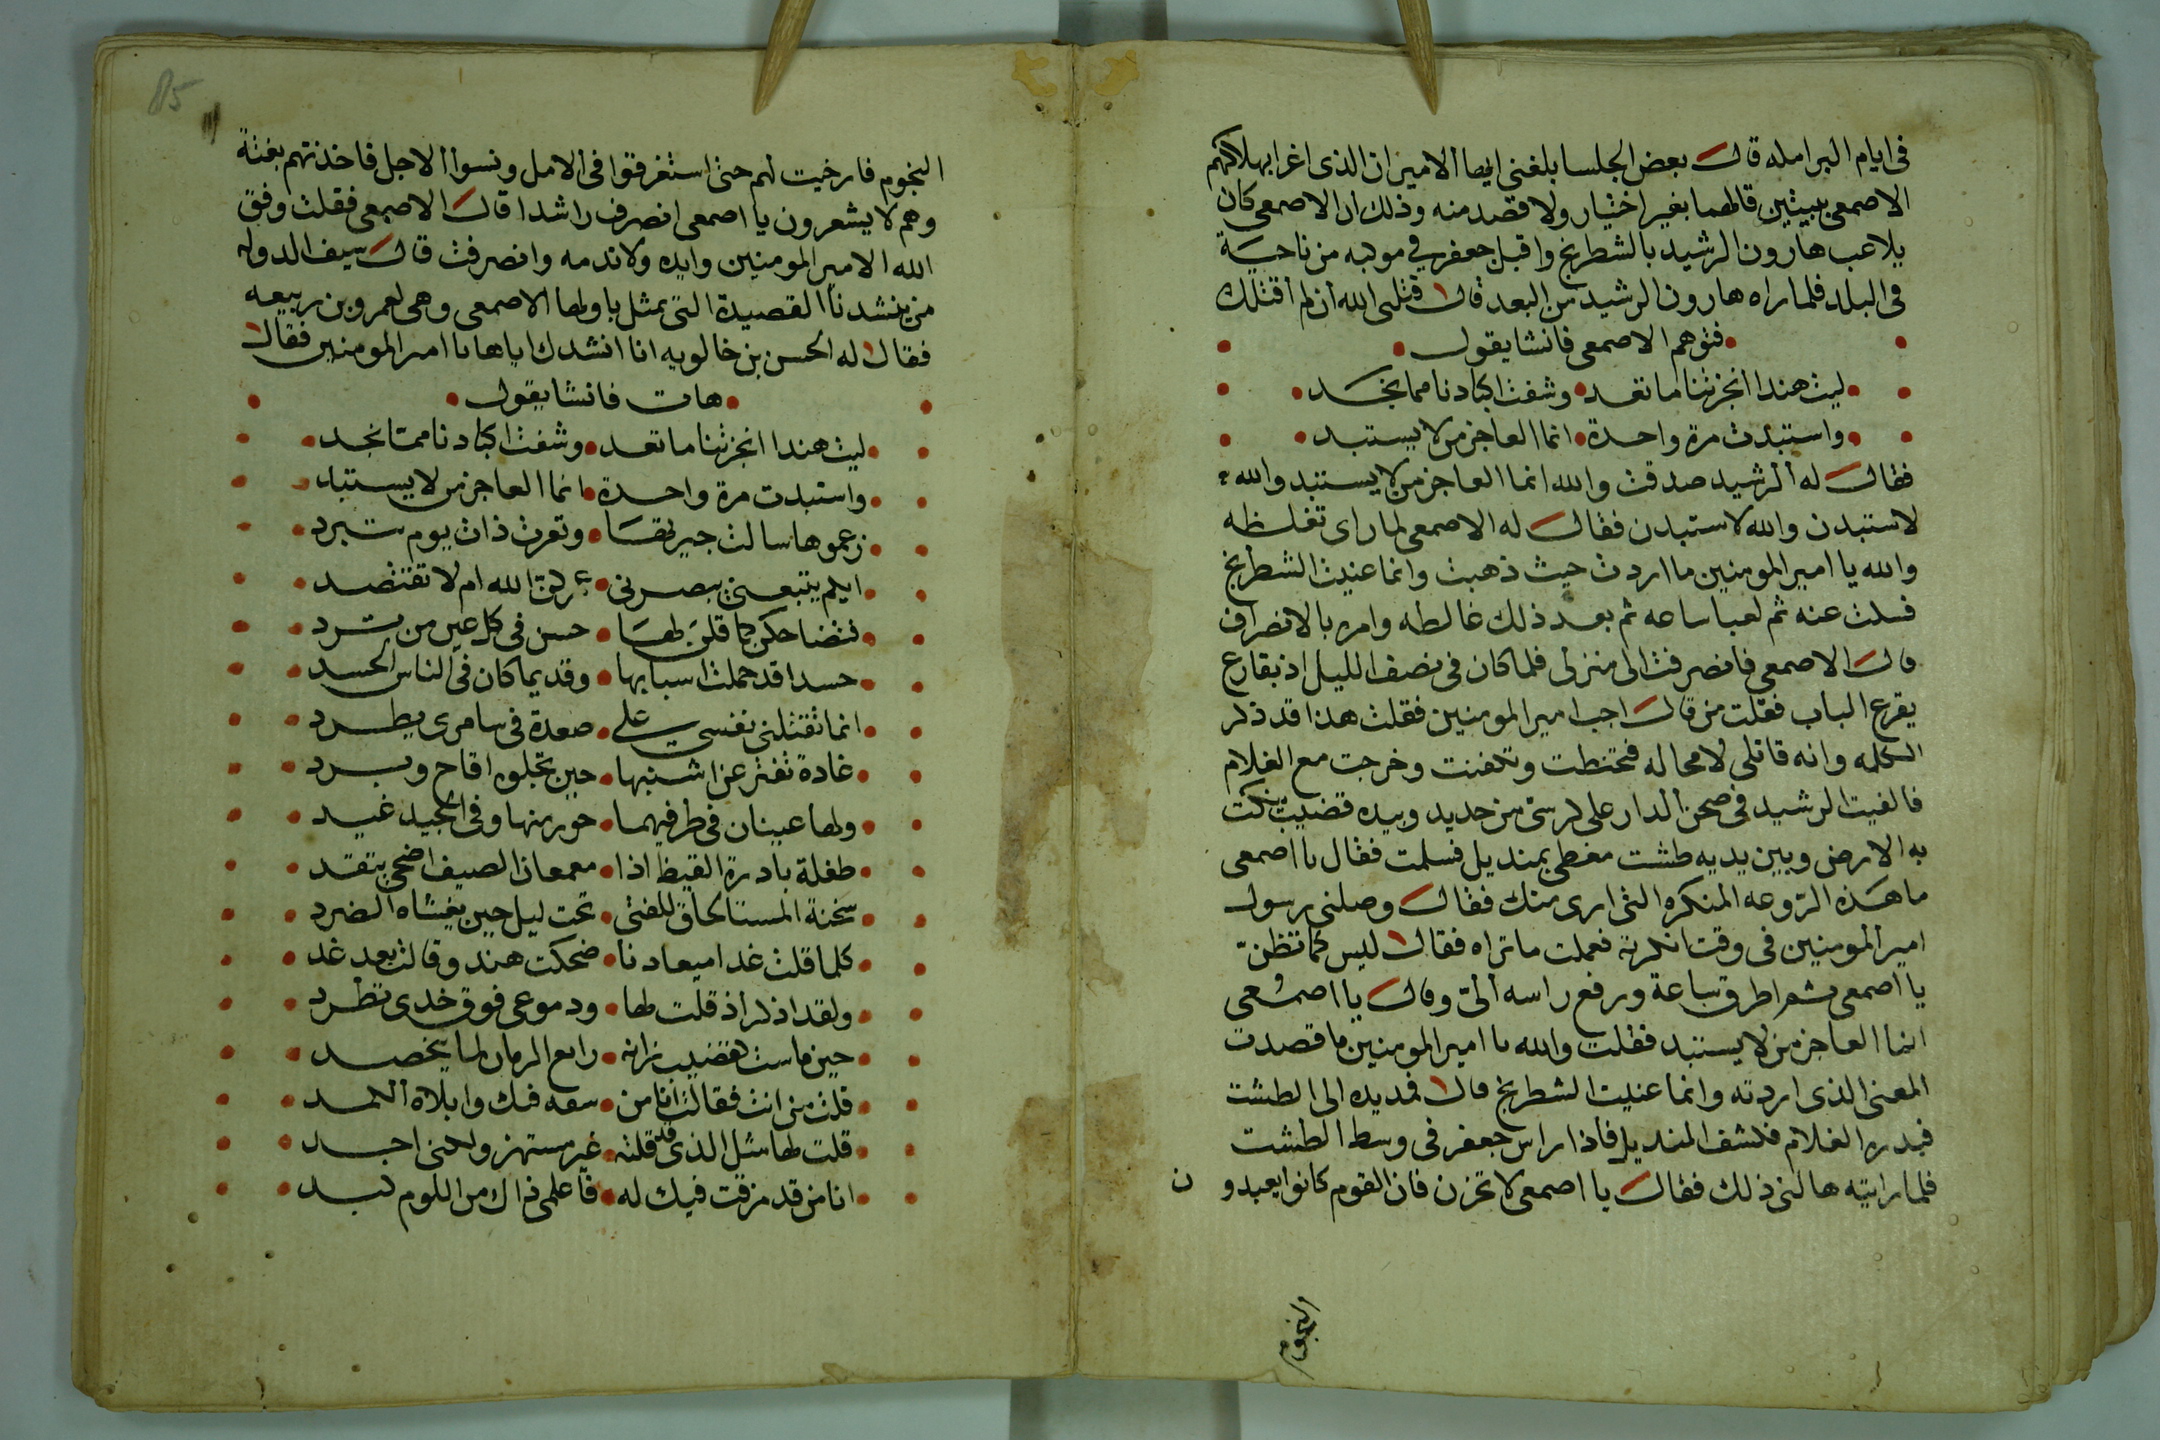 فى ايام البرامكه قال بعض الجلسا بلغنى ايها الامير ان الذى اغرا بهلاكهم
الاصمعى ببيتين قالهما بغير اختيار ولا قصد منه وذلك ان الاصمعى كان
يلاعب هارون الرشيد بالشطرنج واقبل جعفر في موكبه من ناحية
فى البلد فلما راه هارون الرشيد من البعد قال قتلنى الله ان لم اقتلك
فتوهم الاصمعى فانشا يقول
ليت هندا انجزتنا ما تعد وشفت اكبادنا مما نجد
واستبدت مرة واحدة انما العاجز من لا يستبد
فقال له الرشيد صدقت والله انما العاجز من لا يستبد والله
لاستبدن والله لاستبدن فقال له الاصمعى لما راى تغلظه
والله يا امير المومنين ما اردت حيث ذهبت وانما عنيت الشطرنج
فسكت عنه ثم لعبا ساعه ثم بعد ذلك غالطه وامره بالانصراف
قال الاصمعى فانصرفت الى منزلى فلما كان فى نصف الليل اذ بقارع
يقرع الباب فقلت من قال اجب امير المومنين فقلت هذا قد ذكر
الكلمه وانه قاتلى لا محاله فتحنطت وتكفنت وخرجت مع الغلام
فالفيت الرشيد فى صحن الدار على كرسى من حديد وبيده قضيب ينكت
به الارض وبين يديه طشت مغطى بمنديل فسلمت فقال يا اصمعى
ما هذه الروعه المنكره التى ارى منك فقال وصلنى رسول
امير المومنين فى وقت انكرته فعملت ما تراه فقال ليس كما تظن
يا اصمعى ثم اطرق ساعة ورفع راسه الى وقال يا اصمعى
انما العاجز من لا يستبد فقلت والله يا امير المومنين ما قصدت
المعنى الذى اردته وانما عنيت الشطرنج قال فمد يده الى الطشت
فبدره الغلام فكشف المنديل فاذا راس جعفر فى وسط الطشت
فلما رايته هالنى ذلك فقال يا اصمعى لا تحزن فان القوم كانوا يعبدون
النجوم
85
النجوم فارخيت لهم حتى استغرقوا فى الامل ونسوا الاجل فاخذتهم بغتة
وهم لا يشعرون يا اصمعى انصرف راشدا قال الاصمعى فقلت وفق
الله الامير المومنين وايده ولا ندمه وانصرفت قال سيف الدوله
من ينشدنا القصيدة التى تمثل باولها الاصمعى وهى لعمرو بن ربيعه
فقال له الحسن بن خالويه انا انشدك اياها يا امير المومنين فقال
هات فانشا يقول
ليت هندا انجزتنا ما تعد وشفت اكبادنا مما نجد
واستبدت مرة واحدة انما العاجز من لا يستبد
زعموها سالت جيرتها وتعرت ذات يوم تبترد
ايكم يتبعنى يبصرنى عمركن الله ام لا تقتصد
فتضاحكن بما قلن لها حسن فى كل عين من ترد
حسدا قد حملت اسبابها وقديما كان فى الناس الحسد
انما تقتلنى نفسى على صعدة فى سامرى يطرد
غادة تفتر عن اشنبها حين تجلوه اقاح وبرد
ولها عينان فى طرفيهما حور منها وفى الجيد غيد
طفلة باردة القيظ اذا معمعان الصيف اضحى يتقد
سخنة المشتا لحاق للفتى تحت ليل حين يغشاه الصرد
كلما قلت غدا ميعادنا ضحكت هند وقالت بعد غد
ولقد اذكر اذ قلت لها ودموعى فوق خدى تطرد
حين ماست كقضيب زانه رابع الرمان لما يخصد
قلت من انت فقالت انا من سقه فيك وابلاه الكمد
قلت لها مثل الذى قد قلته غير مستهز ولكنى اجد
انا من قد مزقت فيك له فاعلمى ذاك من اللوم كبد